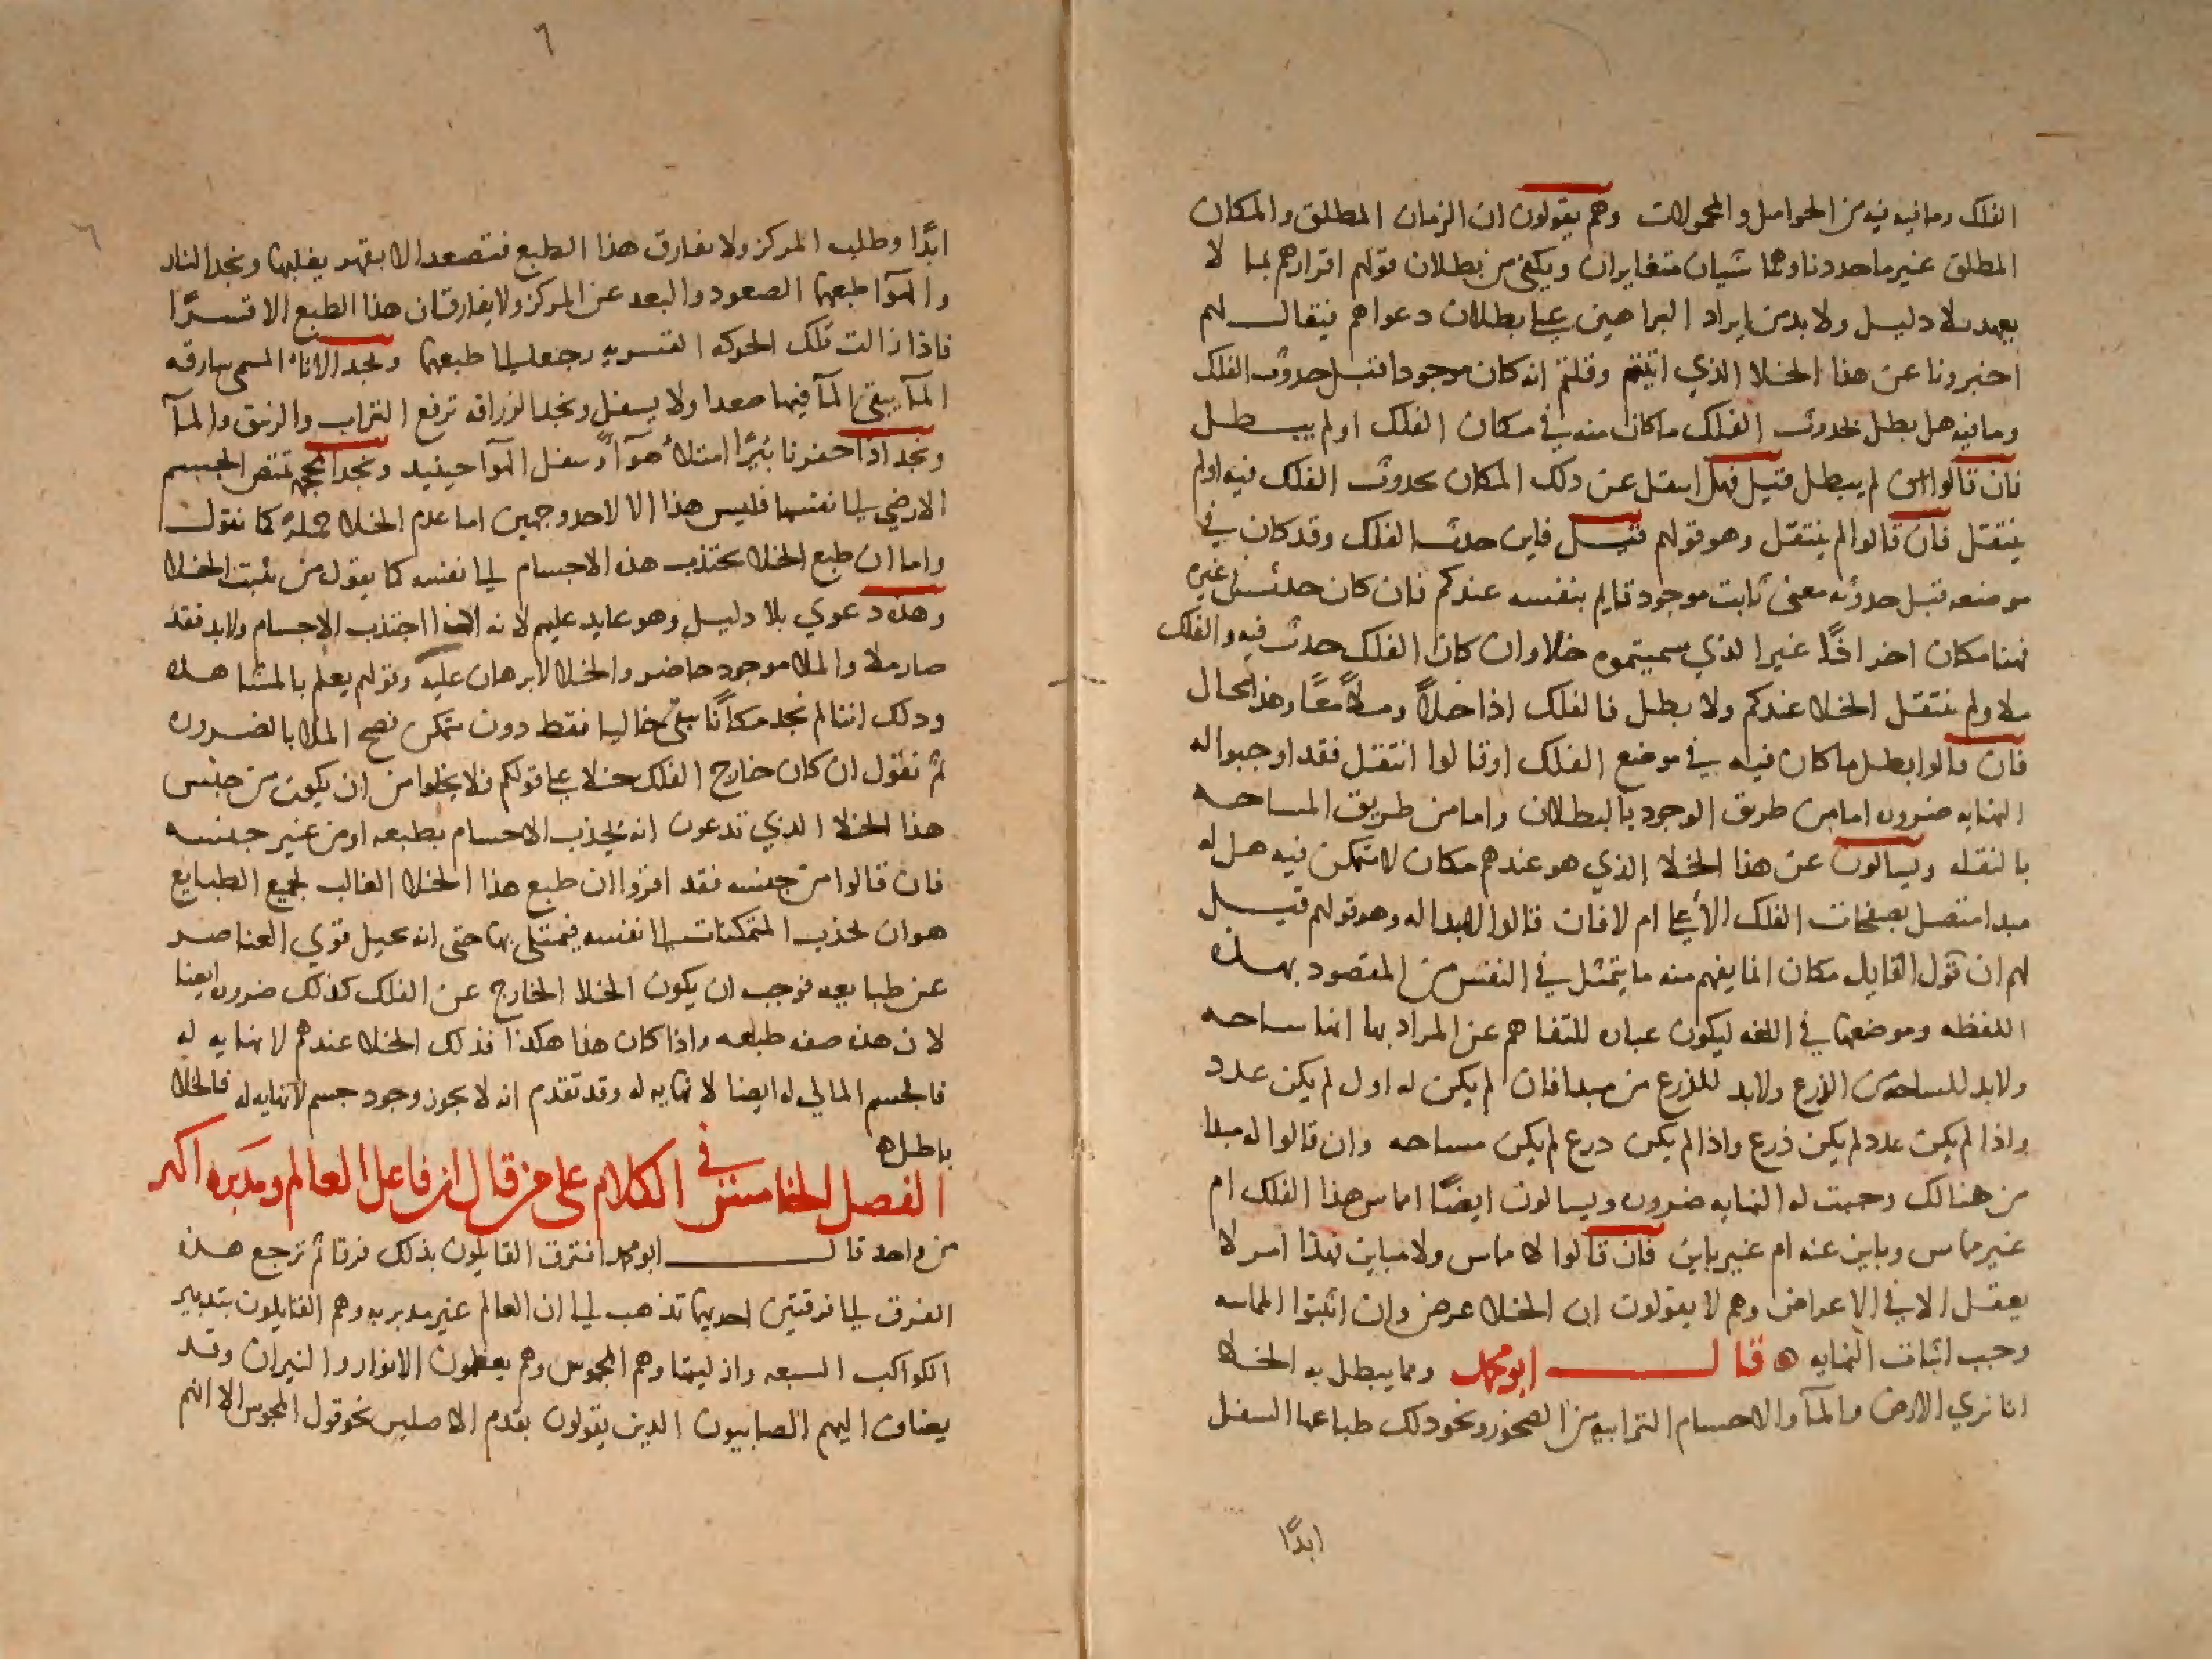 الفلك وما فيه من الحوامل والمحمولات وهم يقولون ان الزمان المطلق والمكان
المطلق غير ما حددنا وهما شيان متغايران ويكفي من بطلان قولهم اقرارهم بما لا
يعهد بلا دليل ولا بد من ايراد البراهين على بطلان دعواهم فيقال لهم
اخبرونا عن هذا الخلا الذي اثبتم وقلتم انه كان موجودا قبل حدوث الفلك
وما فيه هل بطل بحدوث الفلك ما كان منه في مكان الفلك او لم يبطل
فان قالوا لم يبطل قيل فهل انتقل عن ذلك المكان بحدوث الفلك فيه او لم
ينتقل فان قالوا لم ينتقل وهو قولهم قيل فاين حدث الفلك وقد كان في
موضعه قبل حدوثه معنى ثابت موجود قايم بنفسه عندكم فان كان حدث في غيره
فهنا مكان اخر اذًا غير الذي سميتموه خلا وان كان الفلك حدث فيه والفلك
ملا ولم ينتقل الخلا عندكم ولا بطل فالفلك اذا خلاً وملاً معًا وهذا محال
فان قالوا بطل ما كان فيه في موضع الفلك او قالوا انتقل فقد اوجبوا له
النهايه ضروره اما من طريق الوجود بالبطلان واما من طريق المساحه
بالنقله ويسالون عن هذا الخلا الذي هو عندهم مكان لا متمكن فيه هل له
مبدا متصل بصفحات الفلك الأعلى ام لا فان قالوا لا مبدا له وهو قولهم قيل
لهم ان قول القايل مكان انما يفهم منه ما يتمثل في النفس من المقصود بهذه
اللفظه وموضعها في اللغه ليكون عباره للتفاهم عن المراد بها انها مساحه
ولا بد للمساحه من الذرع ولا بد للذرع من مبدا فان لم يكن له اول لم يكن عدد
واذا لم يكن عدد لم يكن ذرع واذا لم يكن ذرع لم يكن مساحه وان قالوا له مبدا
من هنالك وجبت له النهايه ضروره ويسالون ايضًا اماس هذا الفلك ام
غير مماس وباين عنه ام غير باين فان قالوا لا مماس ولا مباين فهذا امر لا
يعقل الا في الاعراض وهم لا يقولون ان الخلا عرض وان اثبتوا المماسه
وجب اثبات النهايه ه قال ابو محمد ومما يبطل به الخلا
انا نري الارض والمآ والاجسام الترابيه من الصخور ونحو ذلك طباعها السفل
ابدًا
٦
ابدًا وطلب المركز ولا يفارق هذا الطبع فتصعد الا بقهر يغلبها ونجد النار
والهوآ طبعهما الصعود والبعد عن المركز ولا يفارقان هذا الطبع الا قسرًا
فاذا زالت تلك الحركه القسريه رجعا الى طبعهما ونجد الاناء المسمى سارقه
المآ يبقى المآ فيها صعدا ولا يسفل ونجد الزراقه ترفع التراب والزيبق والمآ
ونجد اذا حفرنا بئرًا امتلأ هوآ وسفل الهوآ حينيد ونجد المحجمه تمتص الجسم
الارضي الى نفسها فليس هذا الا لاحد وجهين اما عدم الخلا جملة كما نقول
واما ان طبع الخلا يجتذب هذه الاجسام الى نفسه كما يقول من يثبت الخلا
وهذه دعوي بلا دليل وهو عايد عليهم لانه اذا اجتذب الاجسام ولا بد فقد
صار ملا والملا موجود حاضر والخلا لا برهان عليه وقولهم يعلم بالمشاهده
وذلك اننا لم نجد مكانًا يبقى خاليا فقط دون متمكن فصح الملا بالضروره
ثم نقول ان كان خارج الفلك خلا على قولكم فلا يخلوا من ان يكون من جنس
هذا الخلا الذي تدعون انه يجذب الاجسام بطبعه او من غير جنسه
فان قالوا من جنسه فقد اقروا ان طبع هذا الخلا الغالب لجميع الطبايع
هو ان يجذب المتمكنات الى نفسه فيمتلي بها حتى انه يحيل قوي العناصر
عن طبايعه فوجب ان يكون الخلا الخارج عن الفلك كذلك ضروره ايضا
لان هذه صفه طبعه واذا كان هذا هكذا فذلك الخلا عندهم لا نهايه له
فالجسم المالي له ايضا لا نهايه له وقد تقدم انه لا يجوز وجود جسم لا نهايه له فالخلا
باطل ه
الفصل الخامس في الكلام على من قال ان فاعل العالم ومدبره اكثر
من واحد قال ابو محمد افترق القايلون بذلك فرقا ثم ترجع هذه
الفرق الى فرقتين احديهما تذهب الى ان العالم غير مدبريه وهم القايلون بتدبير
الكواكب السبعه وازليتها وهم المجوس وهم يعظمون الانوار والنيران وقد
يضاف اليهم الصابيون الذين يقولون بقدم الاصلين نحو قول المجوس الا انهم